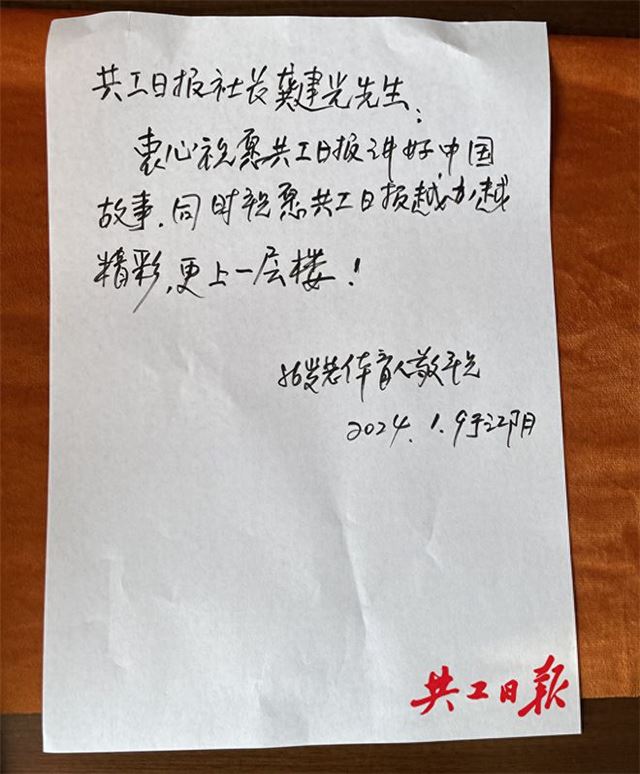 共工日报社长龚建光先生:
衷心祝愿共工日报讲好中国
故事.同时祝愿共工日报越办越
精彩,更上一层楼!
86岁老体育人敬祝
2024.1.9于江阴
共工日报